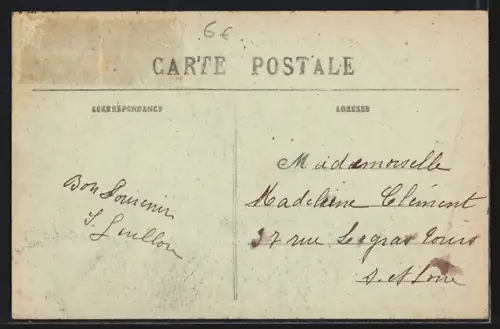 6€
CARTE POSTALE
CORRESPONDANCE
ADRESSE
Bon Souvenir
Mademoiselle
Madeleine Clément
37 rue Legras Tours
I. et Loire